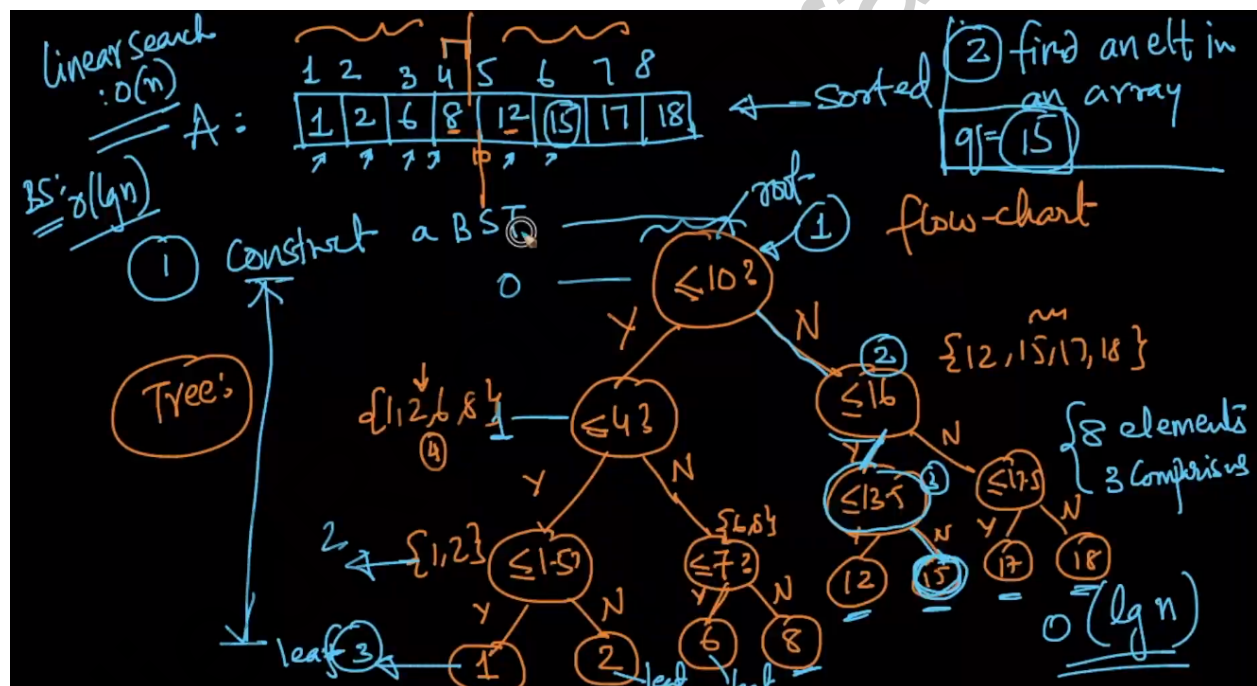 linear search
: O(n)
1 2 3 4 5 6 7 8
A : 1 2 6 8 12 15 17 18
sorted
② find an elt in
an array
q= 15
BS: O(lg n)
① Construct a BST
root
①
flow-chart
0
≤10?
Y N
Tree:
{1,2,6,8}
④
1
≤4?
②
≤16
{12,15,17,18}
{8 elements
3 Comparisns
Y N
Y N
2
{1,2}
≤1.5?
{6,8}
≤7?
≤13.5
③
≤17.5
Y N
Y N
N
Y N
12
15
17
18
O(lg n)
leaf 3
1
2
6
8
leaf
leaf